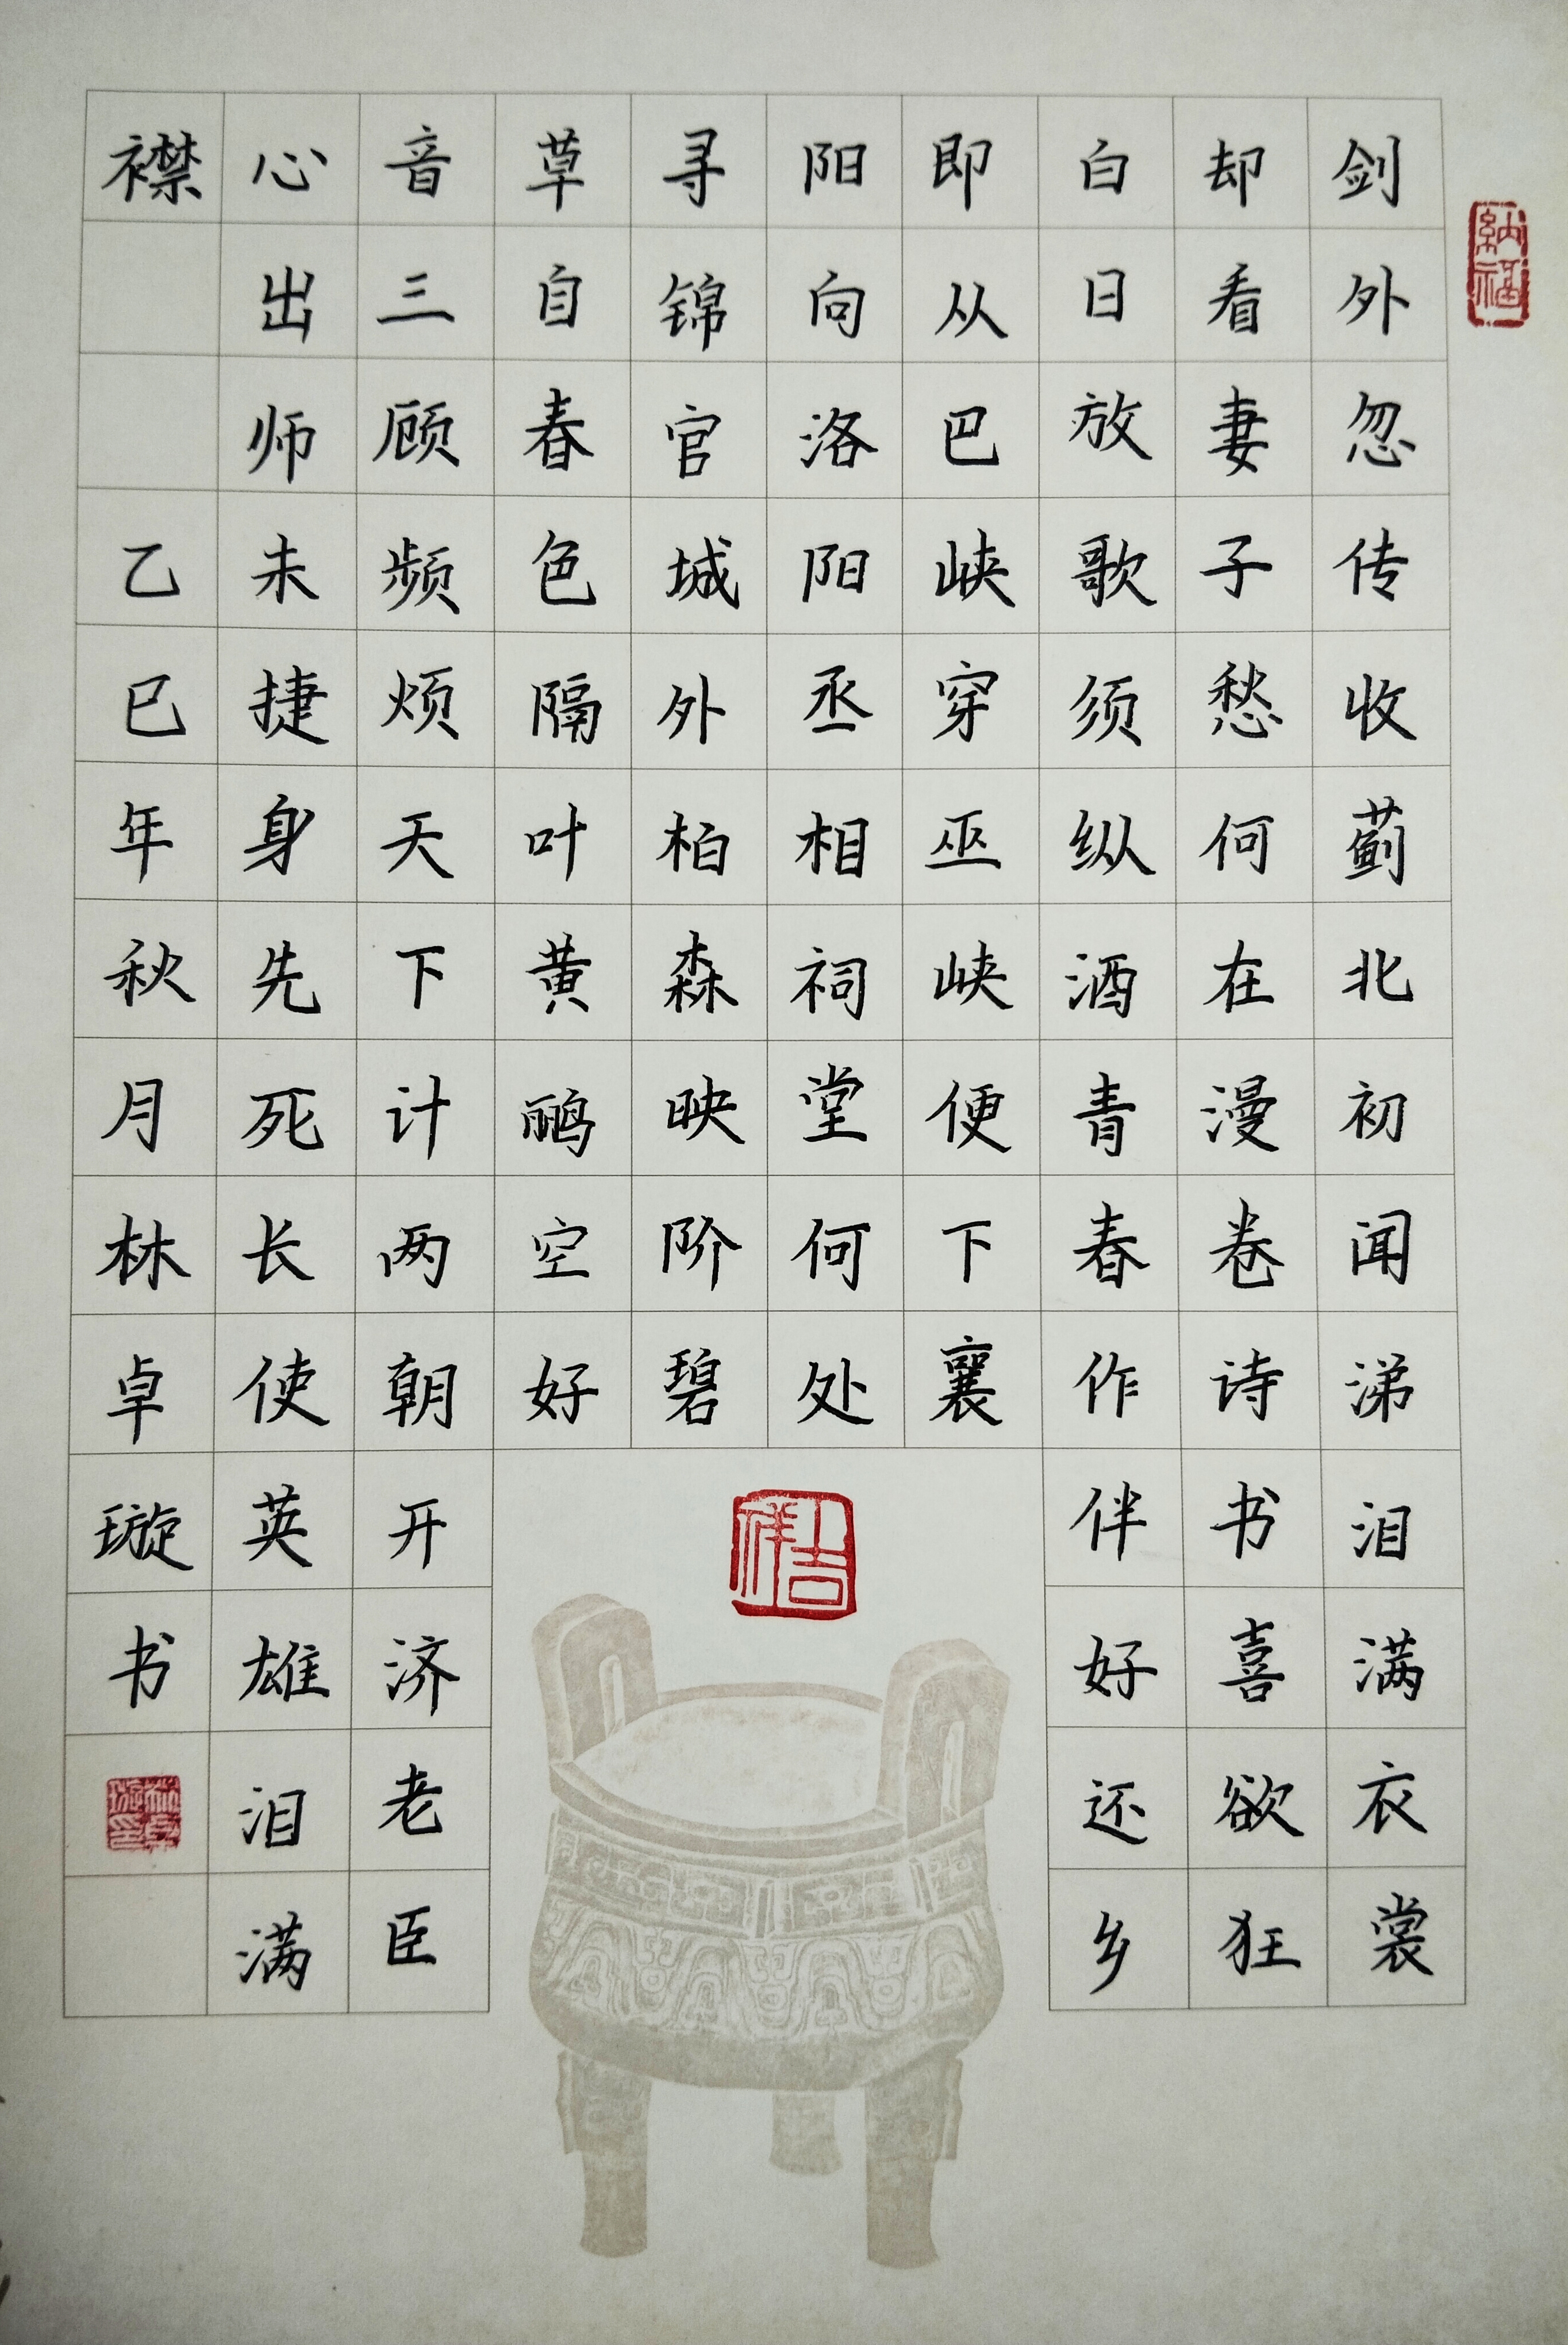 納福
剑外忽传收蓟北初闻涕泪满衣裳
却看妻子愁何在漫卷诗书喜欲狂
白日放歌须纵酒青春作伴好还乡
即从巴峡穿巫峡便下襄
阳向洛阳丞相祠堂何处
寻锦官城外柏森映阶碧
草自春色隔叶黄鹂空好
吉祥
音三顾频烦天下计两朝开济老臣
心出师未捷身先死长使英雄泪满
襟 乙巳年秋月林卓璇书
林卓璇印